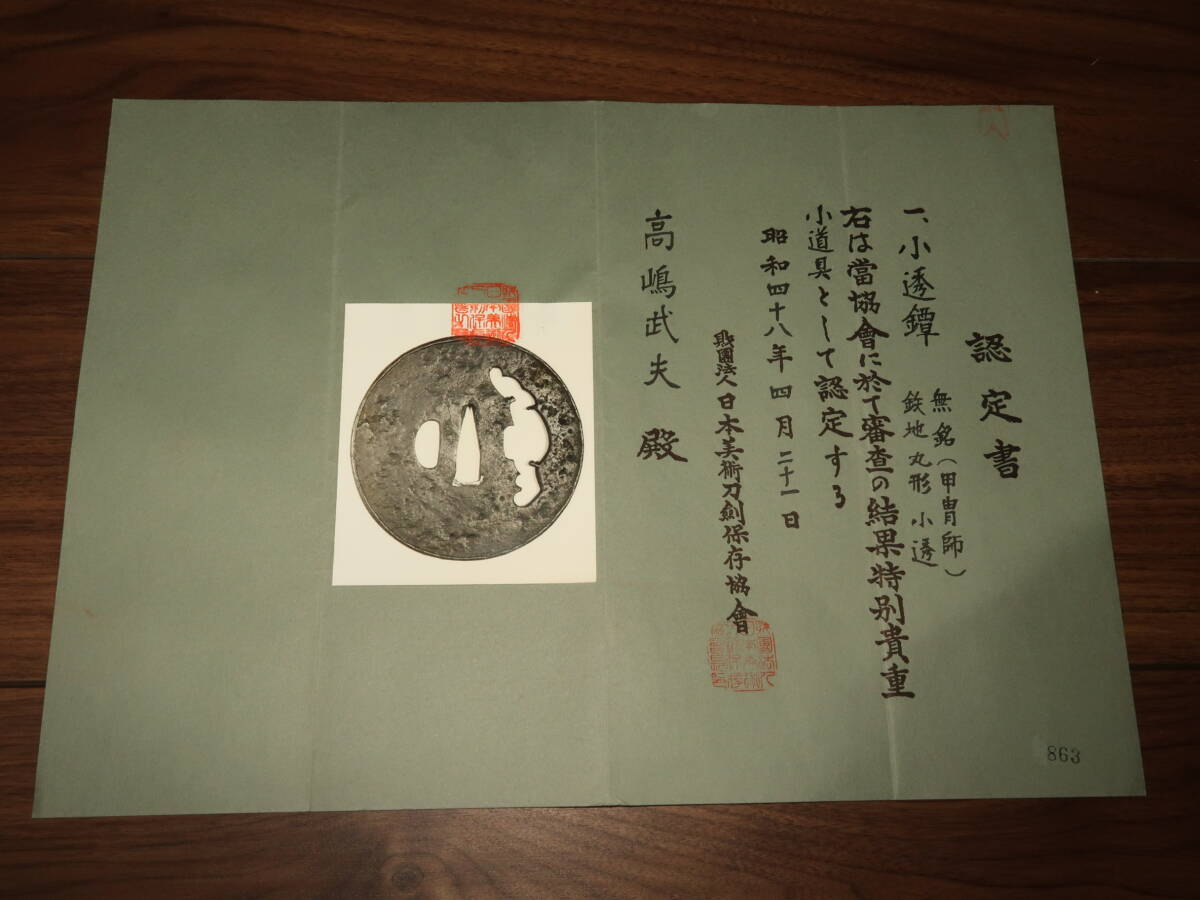 認定書
一、小透鐔
無銘(甲冑師)
鉄地丸形小透
右は當協會に於て審査の結果特別貴重
小道具として認定する
昭和四十八年四月二十一日
財團法人日本美術刀劍保存協會
高嶋武夫 殿
863